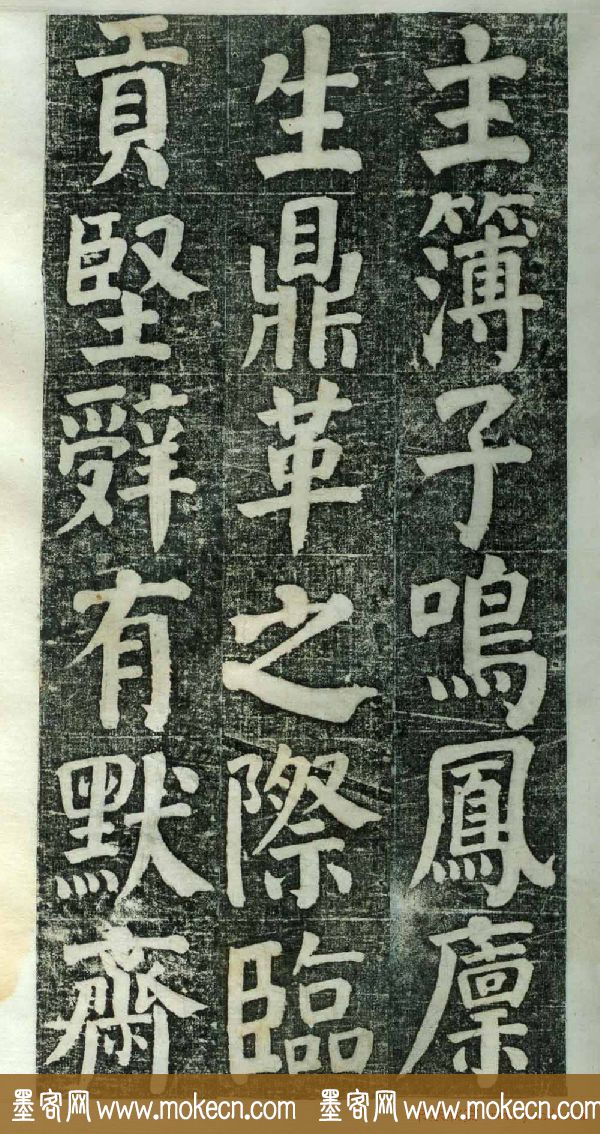 主簿子鳴鳳廩
生鼎革之際臨
貢堅辭有默齋
墨客网 www.mokecn.com 墨客网 www.mokecn.com